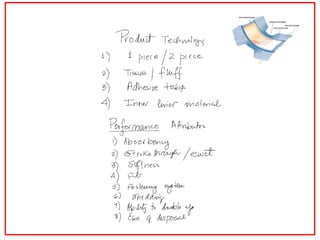 Product Technology
1) 1 piece / 2 piece
2) Tissue / fluff
3) Adhesive tape
4) Inner liner material
Performance Attributes
1) Absorbency
2) Strikethrough / rewet
3) Softness
4) Fit
5) Fastening system
6) Shedding
7) Ability to double up
8) Ease of disposal